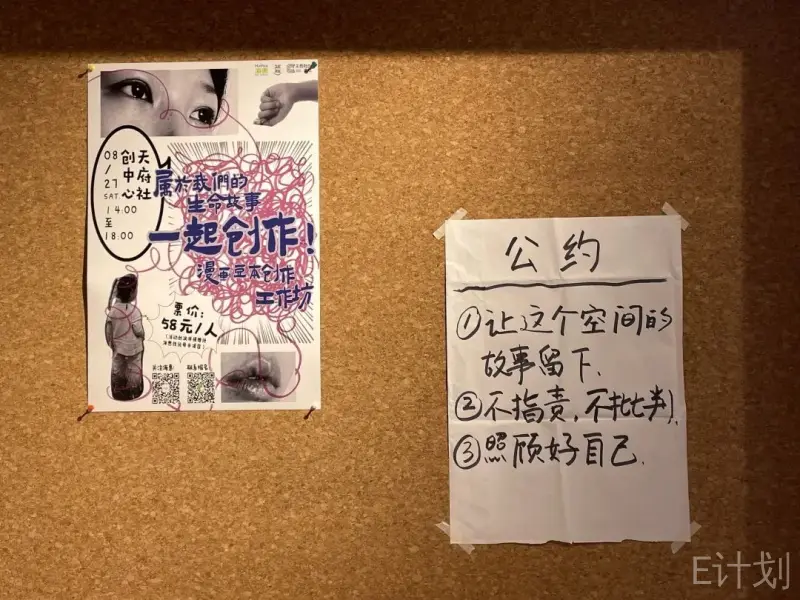 08
/
27
SAT
14.00
至
18.00
天府社
创中心
属於我們的
生命故事
一起创作!
漫画豆本创作
工作坊
票价:
58元/人
公约
①让这个空间的
故事留下.
②不指责,不批判.
③照顾好自己.
E计划